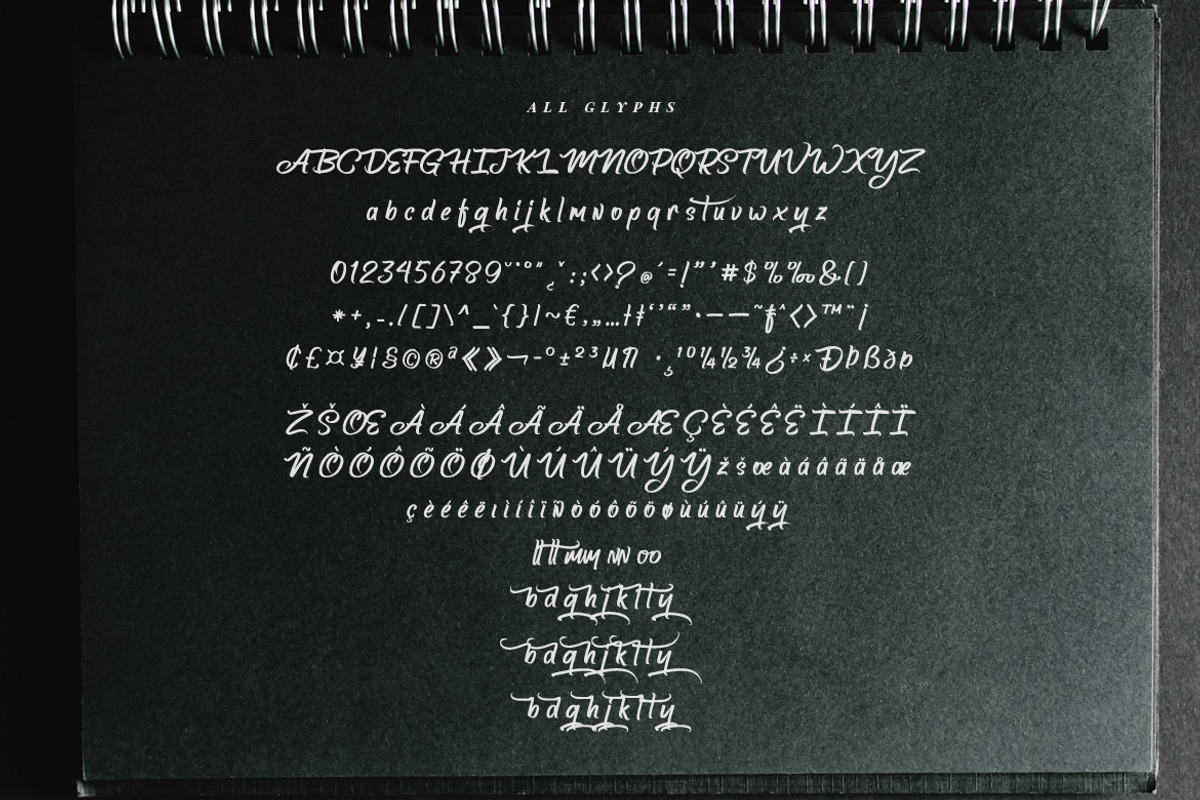 ALL GLYPHS
ABCDEFGHIJKLMNOPQRSTUVWXYZ
abcdefghijklmnopqrstuvwxyz
0123456789˘˙°˝ ˛ˇ:;<>?@´=!”’#$%‰&()
*+,-./[]\^_`{}|~€‚„…†‡‘’“”•–—˜ƒˆ‹›™¨¡
¢£¤¥¦§©®ª«»¬-°±²³µ¶ ·¸¹º¼½¾¿÷×ÐÞßðþ
ŽŠŒÀÁÂÃÄÅÆÇÈÉÊËÌÍÎÏ
ÑÒÓÔÕÖØÙÚÛÜÝŸžšœàáâãäåæ
çèéêëıìíîïñòóôõöøùúûüýÿ
bdghjklty
bdghjklty
bdghjklty